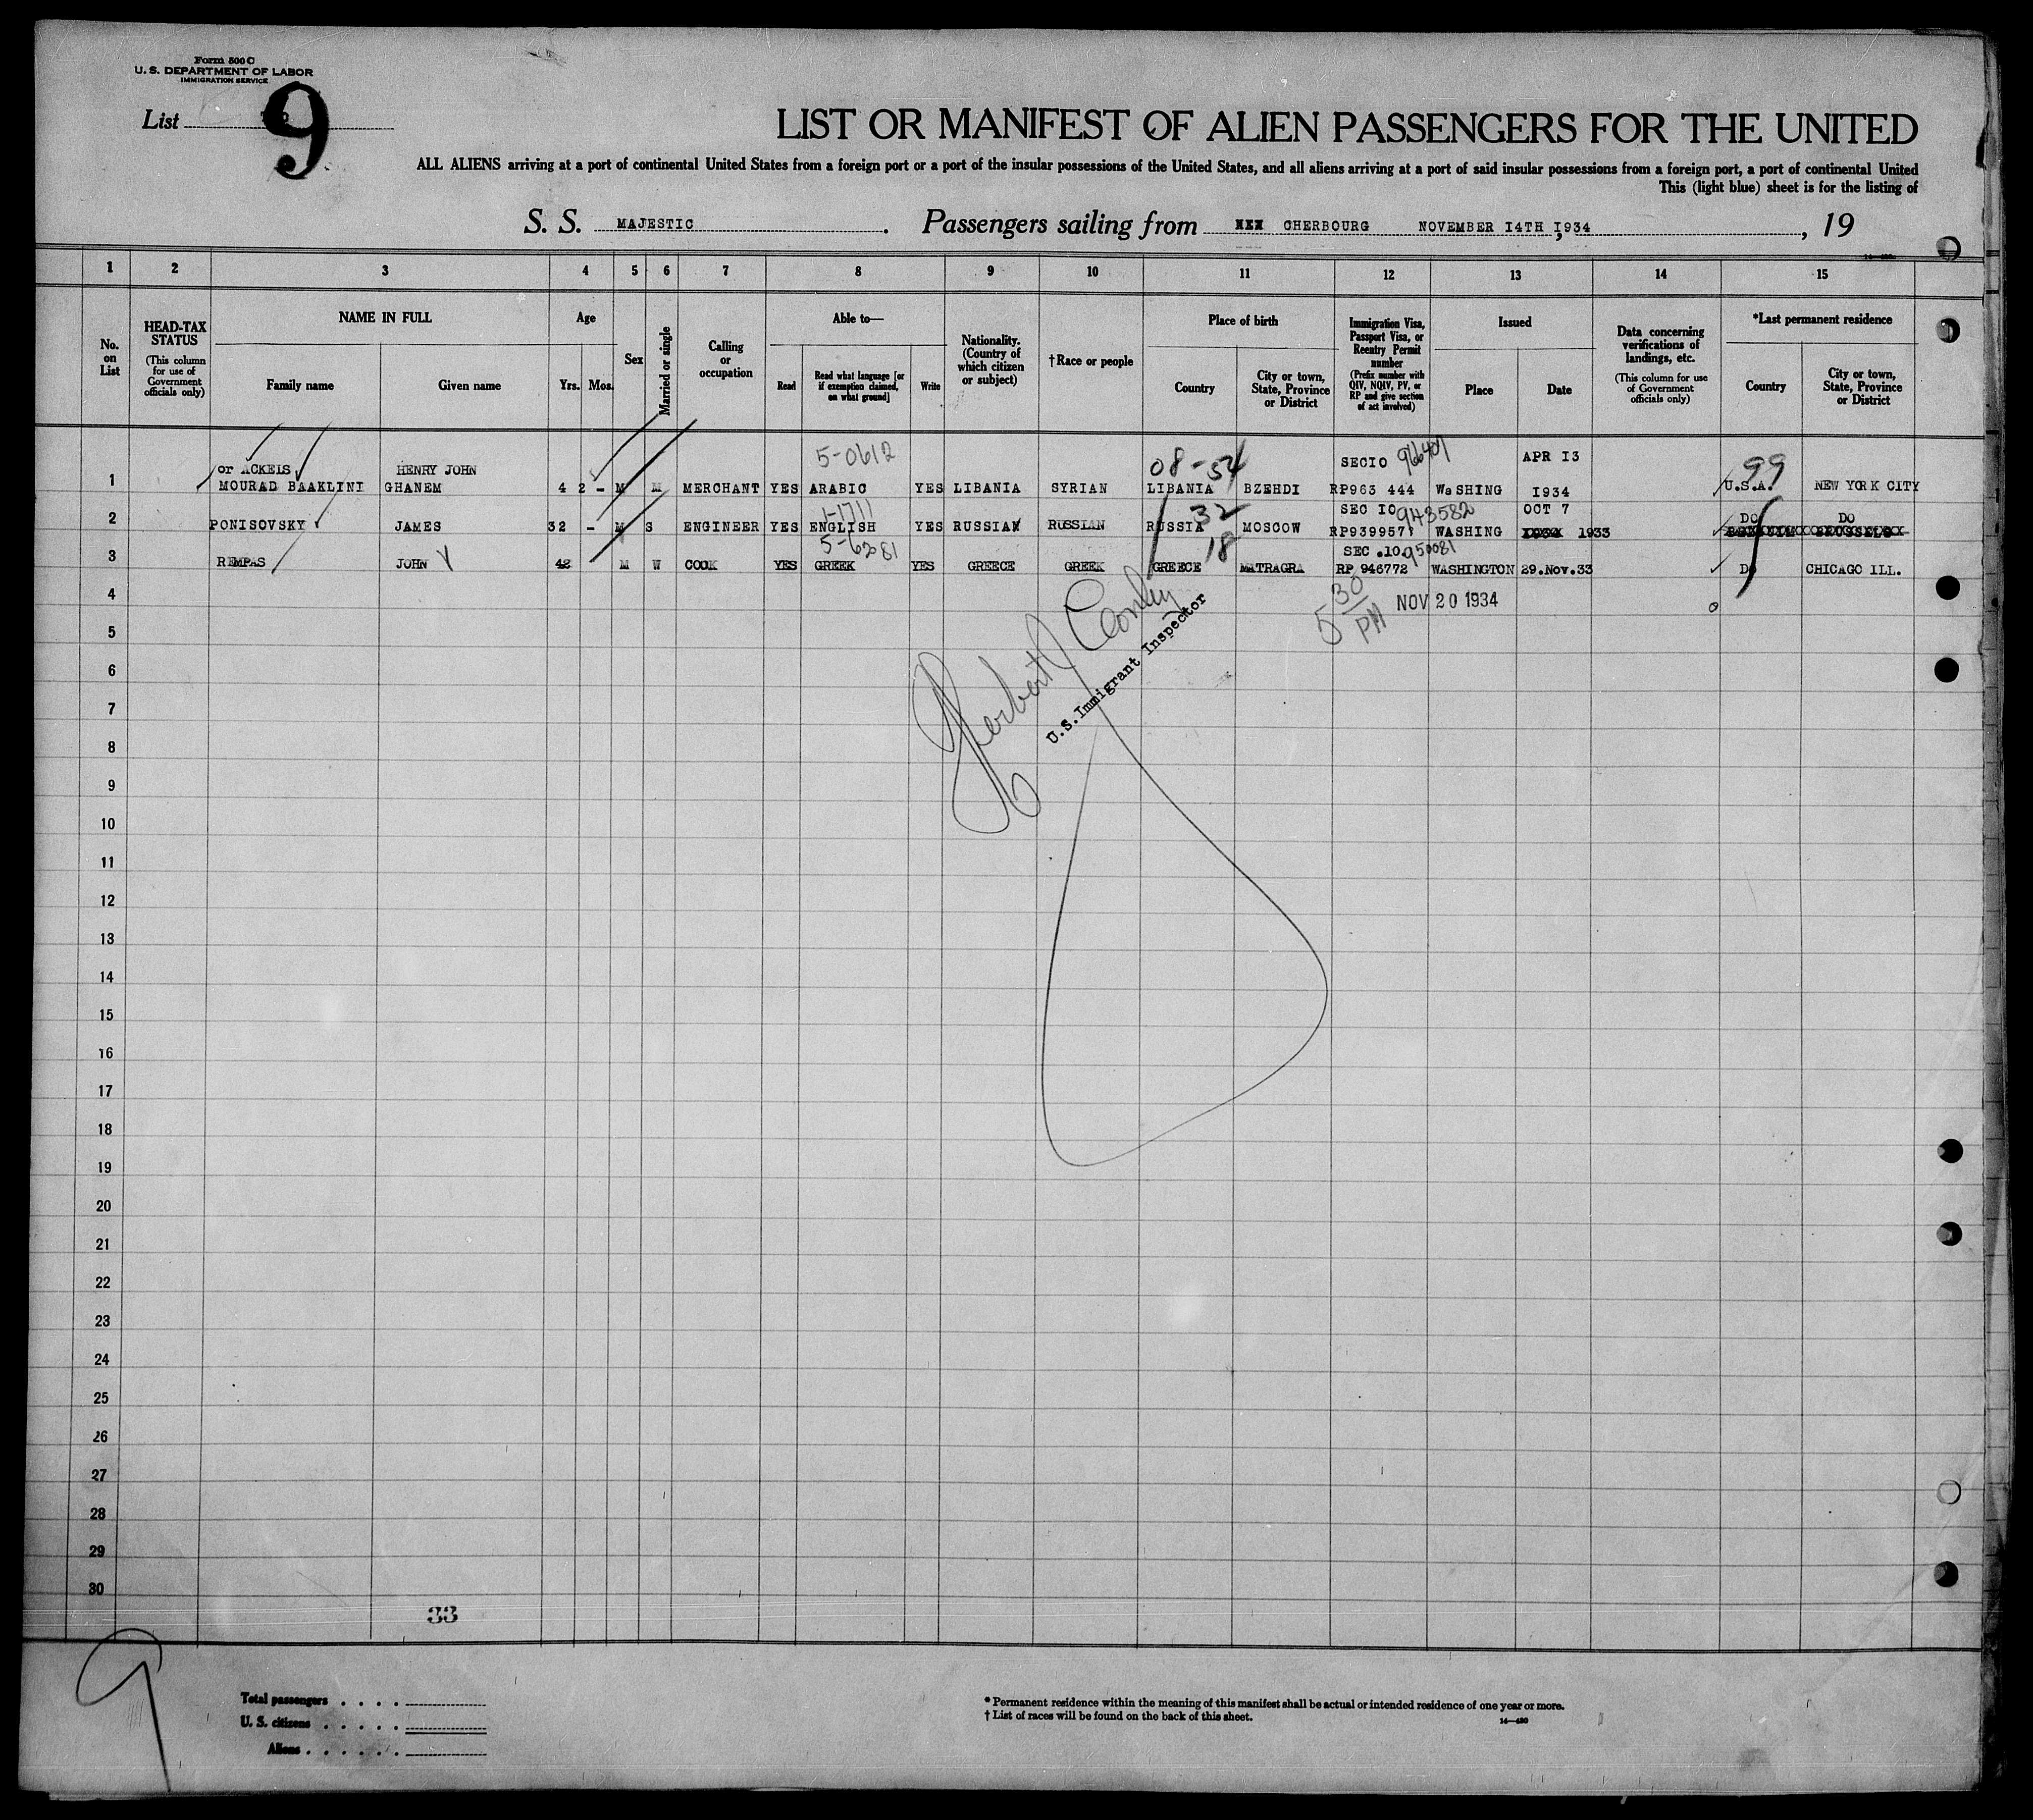 Form 500 C
U. S. DEPARTMENT OF LABOR
IMMIGRATION SERVICE
List 9
LIST OR MANIFEST OF ALIEN PASSENGERS FOR THE UNITED
ALL ALIENS arriving at a port of continental United States from a foreign port or a port of the insular possessions of the United States, and all aliens arriving at a port of said insular possessions from a foreign port, a port of continental United
This (light blue) sheet is for the listing of
S. S. MAJESTIC. Passengers sailing from XXX CHERBOURG NOVEMBER I4TH I934, 19
1 2 3 4 5 6 7 8 9 10 11 12 13 14 15
No. on List
HEAD-TAX STATUS (This column for use of Government officials only)
NAME IN FULL
Family name Given name
Age
Yrs. Mos.
Sex
Married or single
Calling or occupation
Able to—
Read Read what language [or if exemption claimed, on what ground] Write
Nationality. (Country of which citizen or subject)
†Race or people
Place of birth
Country City or town, State, Province or District
Immigration Visa, Passport Visa, or Reentry Permit number (Prefix number with QIV, NQIV, PV, or RP and give section of act involved)
Issued
Place Date
Data concerning verifications of landings, etc. (This column for use of Government officials only)
*Last permanent residence
Country City or town, State, Province or District
5-0612 08-54 99
or ACKEIS HENRY JOHN SECIO 966401 APR I3
1 MOURAD BAAKLINI GHANEM 4 2 - M M MERCHANT YES ARABIC YES LIBANIA SYRIAN LIBANIA BZEHDI RP963 444 WaSHING I934 U.S.A. NEW YORK CITY
1-1711 32 SEC IO 943582 OCT 7 DO DO
2 PONISOVSKY JAMES 32 - M S ENGINEER YES ENGLISH YES RUSSIAN RUSSIAN RUSSIA MOSCOW RP939957 WASHING 1933
5-6281 18 SEC .10. 950081
3 REMPAS JOHN 42 M W COOK YES GREEK YES GREECE GREEK GREECE MATRAGRA RP 946772 WASHINGTON 29.Nov.33 DO CHICAGO ILL.
4 5 30 PM NOV 20 1934
Herbert J Conley
U.S. Immigrant Inspector
5
6
7
8
9
10
11
12
13
14
15
16
17
18
19
20
21
22
23
24
25
26
27
28
29
30
33
9
Total passengers . . . .
U. S. citizens . . . . .
Aliens . . . . . .
* Permanent residence within the meaning of this manifest shall be actual or intended residence of one year or more.
† List of races will be found on the back of this sheet.
14—430